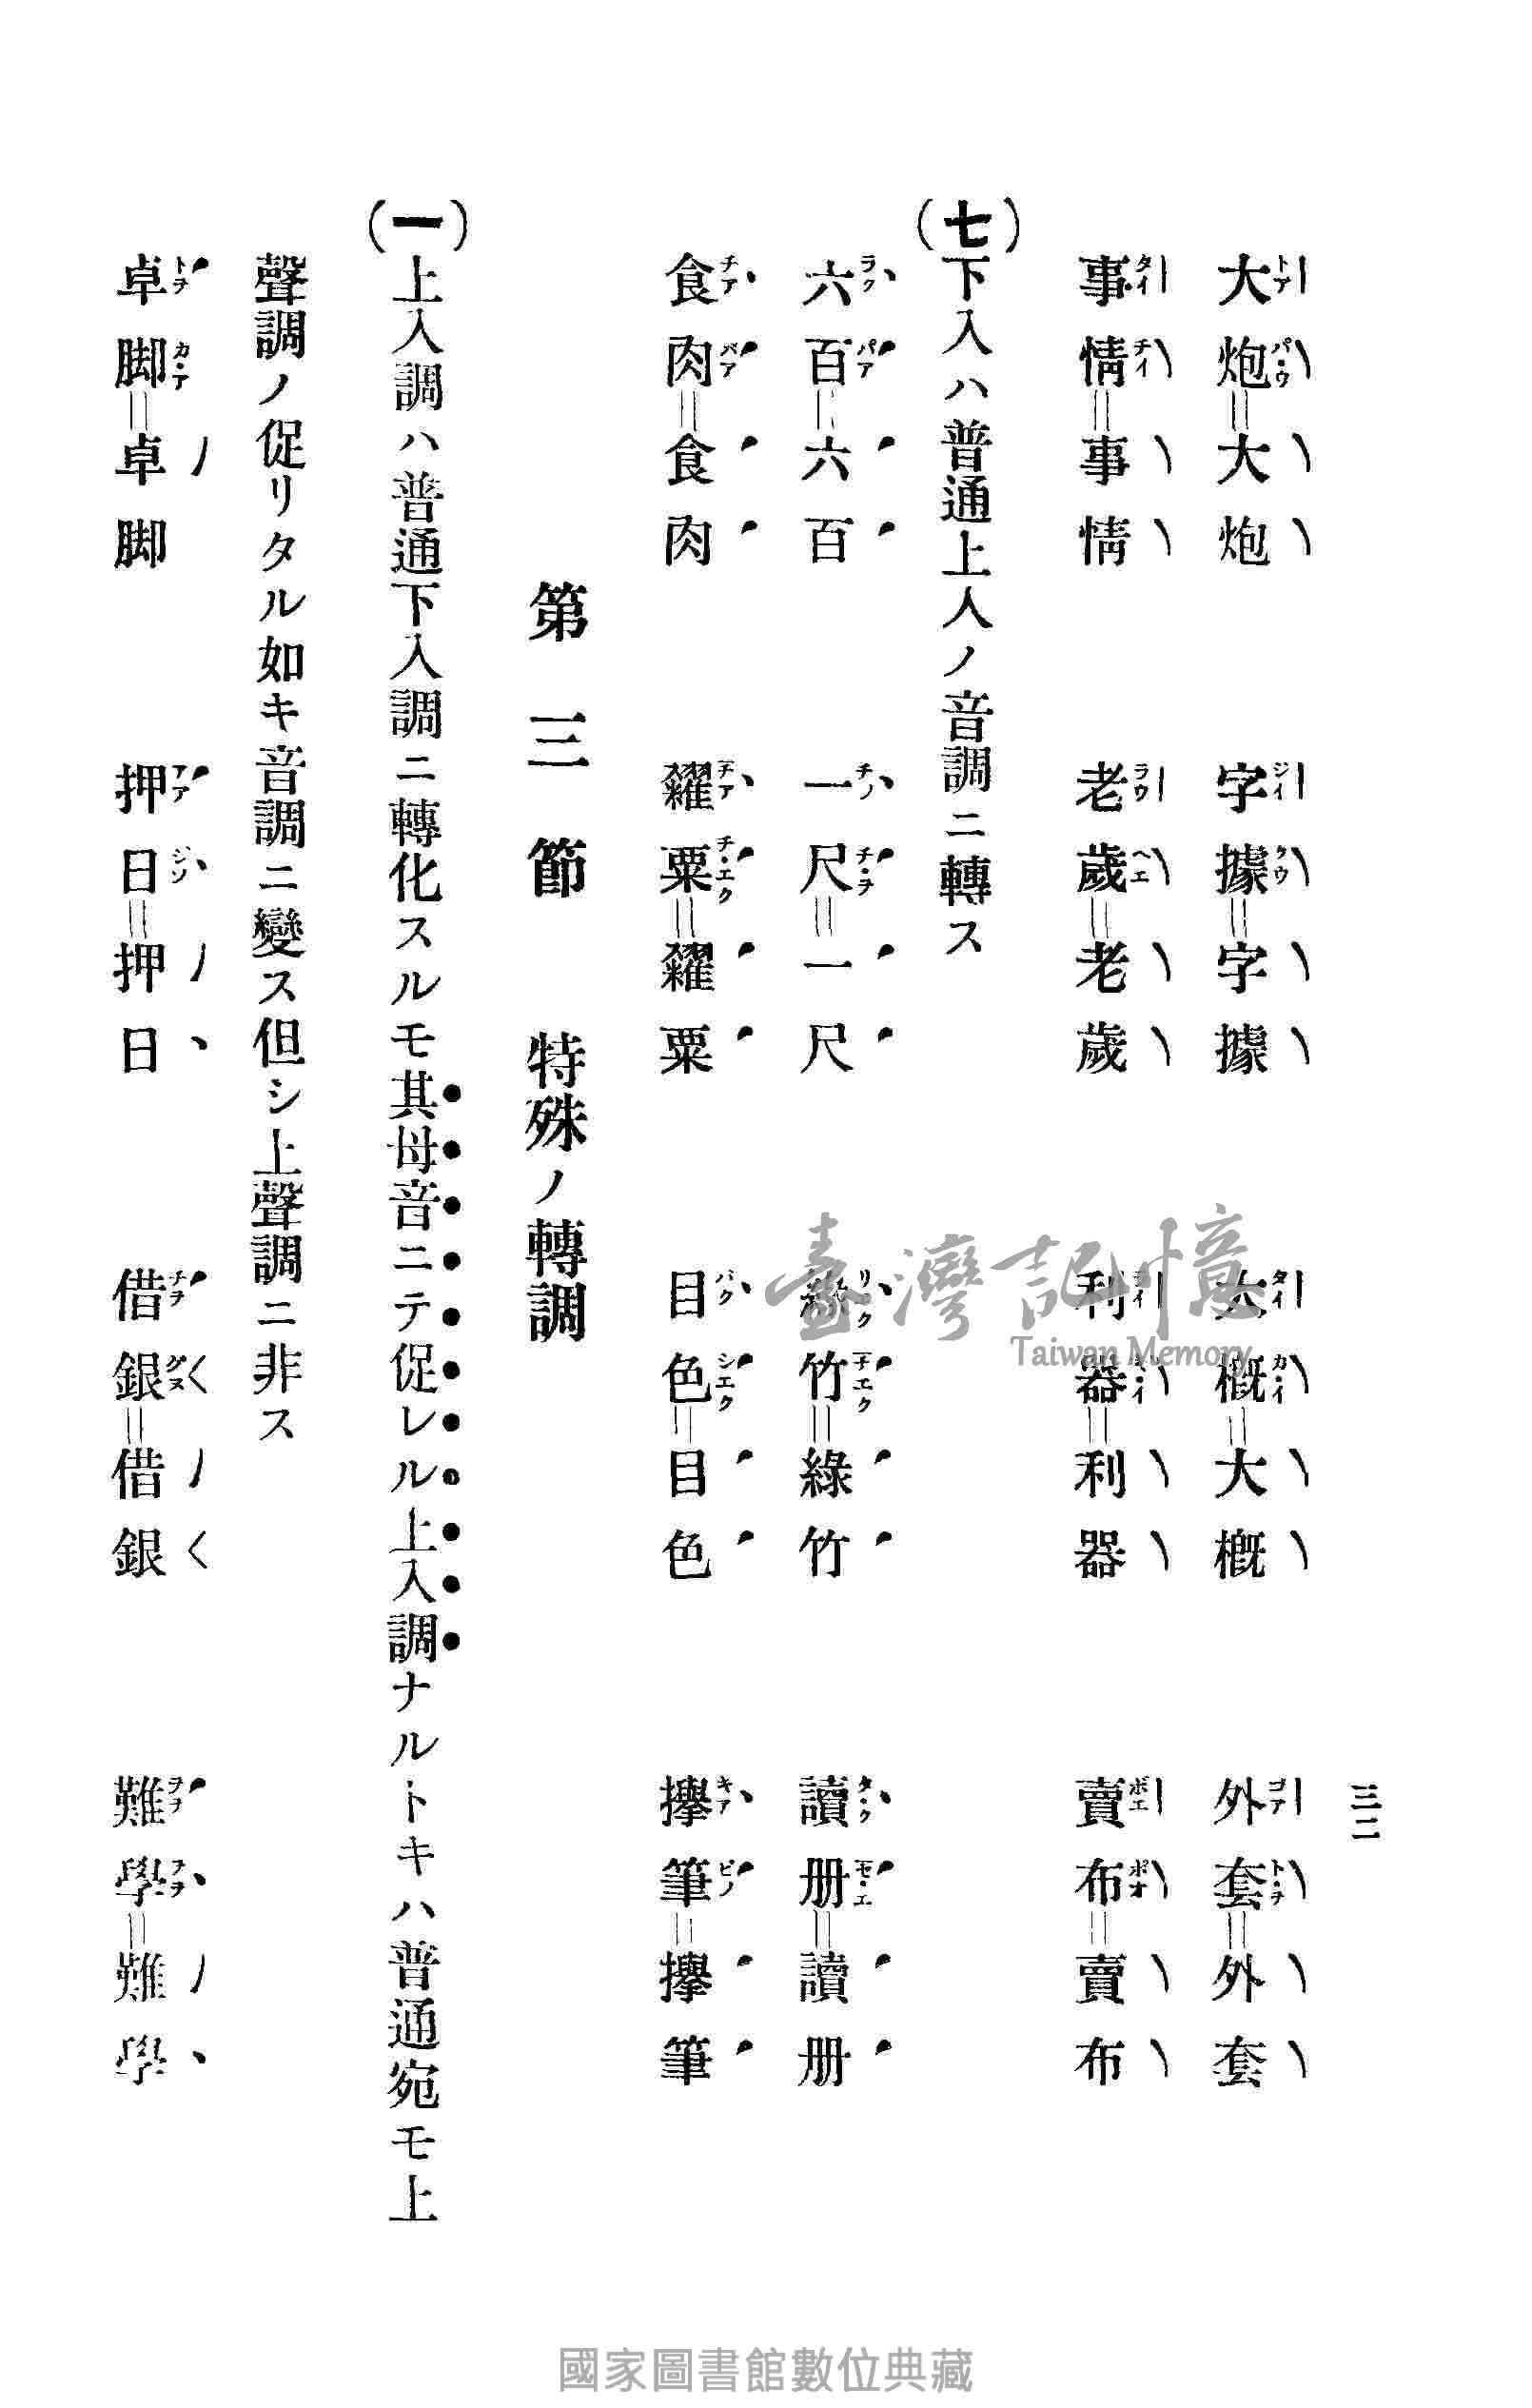 三二
大炮＝大炮　字據＝字據　大概＝大概　外套＝外套
事情＝事情　老歲＝老歲　利器＝利器　賣布＝賣布
(七)下入ハ普通上入ノ音調ニ轉ス
六百＝六百　一尺＝一尺　綠竹＝綠竹　讀册＝讀册
食肉＝食肉　糴粟＝糴粟　目色＝目色　攑筆＝攑筆
第三節　特殊ノ轉調
(一)上入調ハ普通下入調ニ轉化スルモ其母音ニテ促レル上入調ナルトキハ普通宛モ上
聲調ノ促リタル如キ音調ニ變ス但シ上聲調ニ非ス
卓脚＝卓脚　押日＝押日　借銀＝借銀　難學＝難學
臺灣記憶
Taiwan Memory
國家圖書館數位典藏